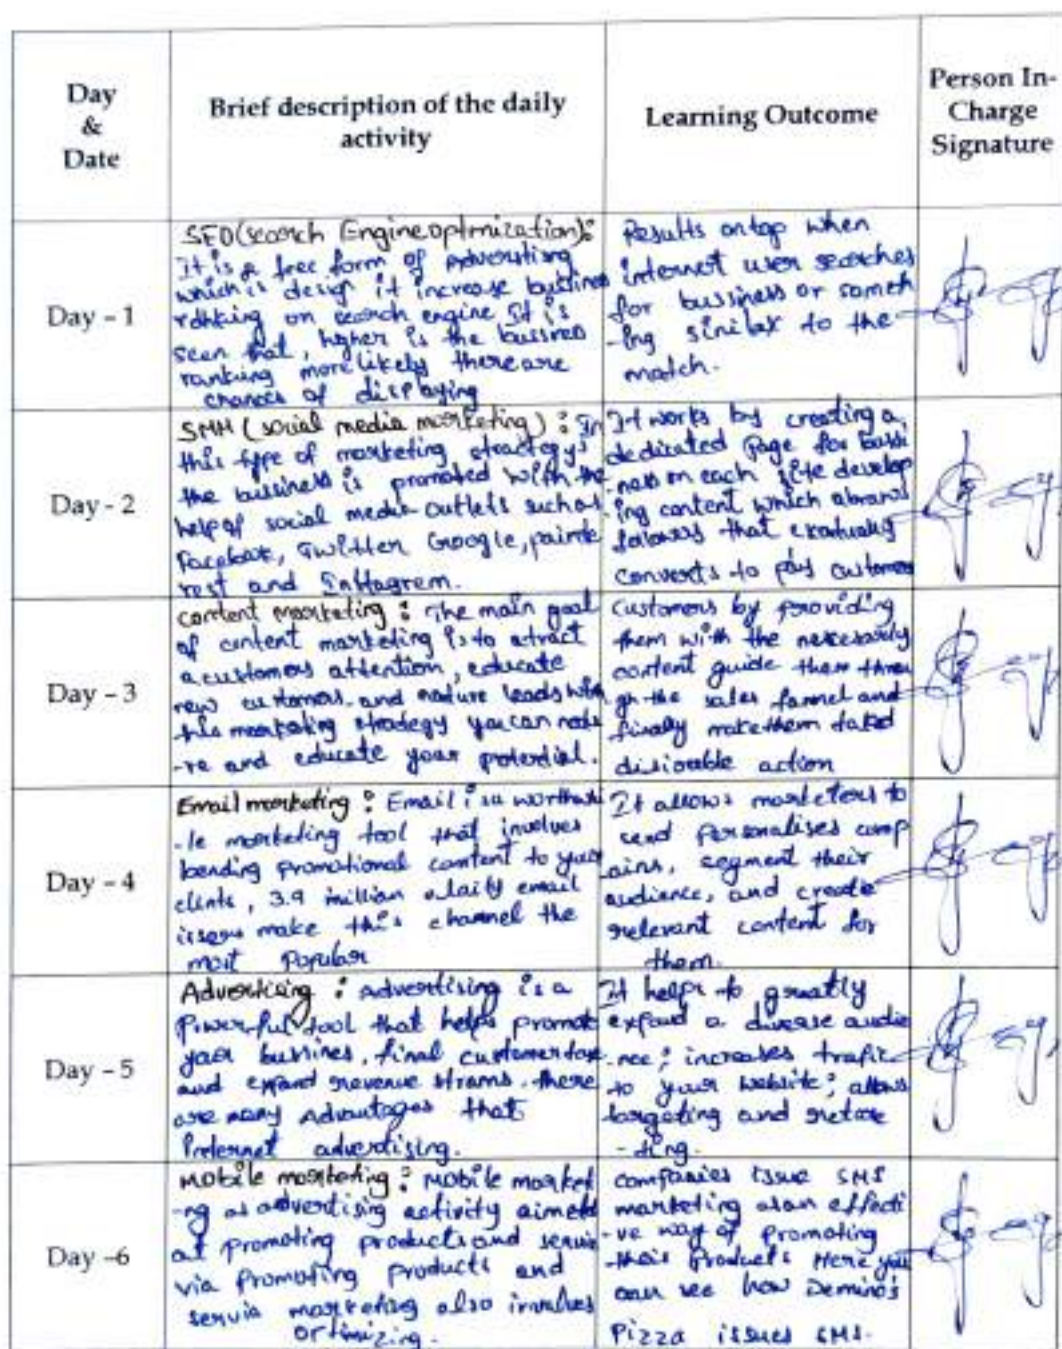 Day
&
Date
Brief description of the daily
activity
Learning Outcome
Person In-
Charge
Signature
Day - 1
SEO (search Engine optmization):
It is a free form of Adverstisng
which is design it increase bussines
ranking on search engine It is
seen that, higher is the bussines
ranking more likely there are
chances of displaying
Results on top when
internet user searches
for bussiness or someth
-ing similar to the
match.
Day - 2
SMM (social media marketing): In
this type of marketing
the bussiness is promoted with the
help of social media outlets such as
Facebook, Twitter Google,
rest and
It works by creating a
dedicated page for bussi
-ness on each site develop
ing content which
that
converts to pay customers
Day - 3
content marketing: The main goal
of content marketing is to atract
a customers attention, educate
new customers. and nature leads with
this marketing stradegy you can
-re and educate your potential.
Customers by providing
them with the
content guide them throu
gh the sales funnel and
finally make them
action
Day - 4
Email marketing: Email is a
-le marketing tool that involves
promotional content to your
clints, 3.9 million email
make this channel the
most popular
It allows marketers to
send Personalises comp
ains, segment their
audience, and create
relevant content for
them.
Day - 5
Advertising: advertising is a
Powerful tool that helps promot
your bussines, final
and expand revenue strams. there
are many Advantages that
Internet advertising.
It helps to greatly
expand a diverse audie
-nce; increases trafic
to your website; allows
targeting and
-ting.
Day -6
Mobile marketing: Mobile market
-ng as advertising activity aimed
at promoting products and
via Promoting products and
marketing also involves
companies issue SMS
marketing as an effecti
-ve way of Promoting
their Products Here you
can see how Demino's
Pizza issues SMS.